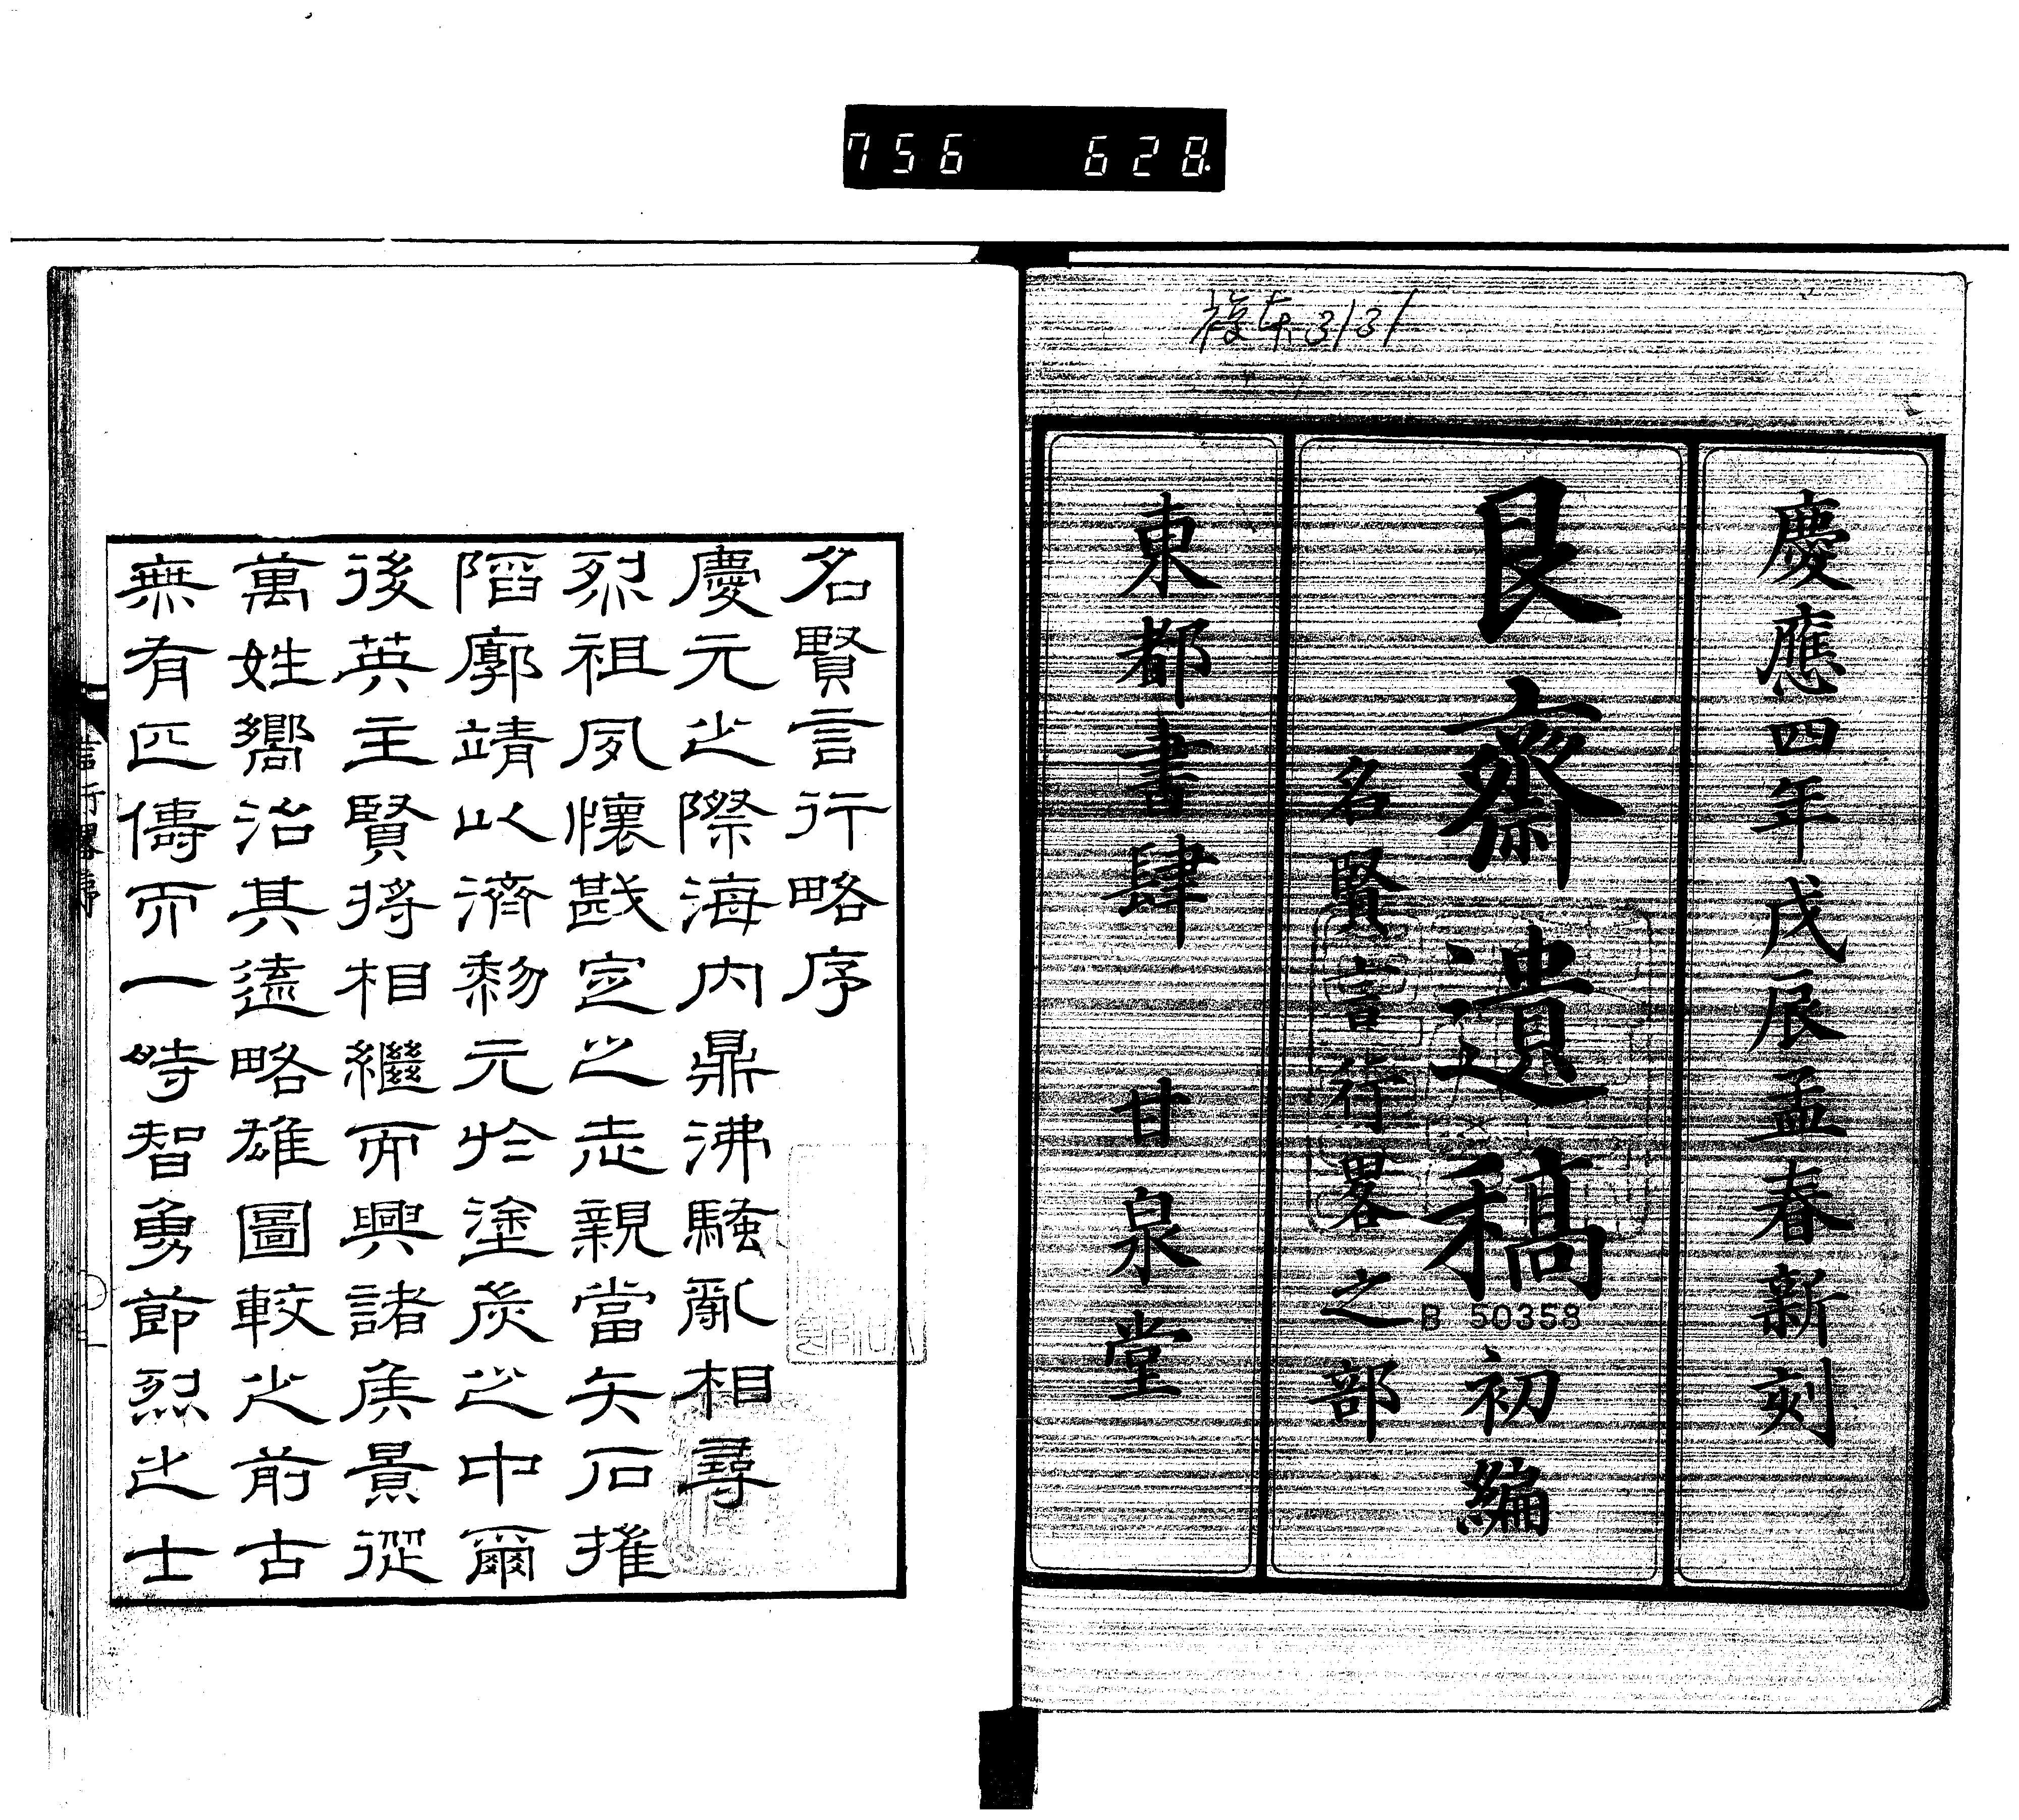 756 628
複本3131
慶應四年戊辰孟春新刻
艮齋遺稿初編
名賢言行畧之部
B 50358
東都書肆 甘泉堂
名賢言行略序
慶元之際海内鼎沸騷亂相尋
烈祖夙懷戡定之志親當矢石摧
陷廓靖以濟黎元於塗炭之中爾
後英主賢將相繼而興諸矦景從
萬姓嚮治其遠略雄圖較之前古
無有匹儔而一時智勇節烈之士
言行畧序
一